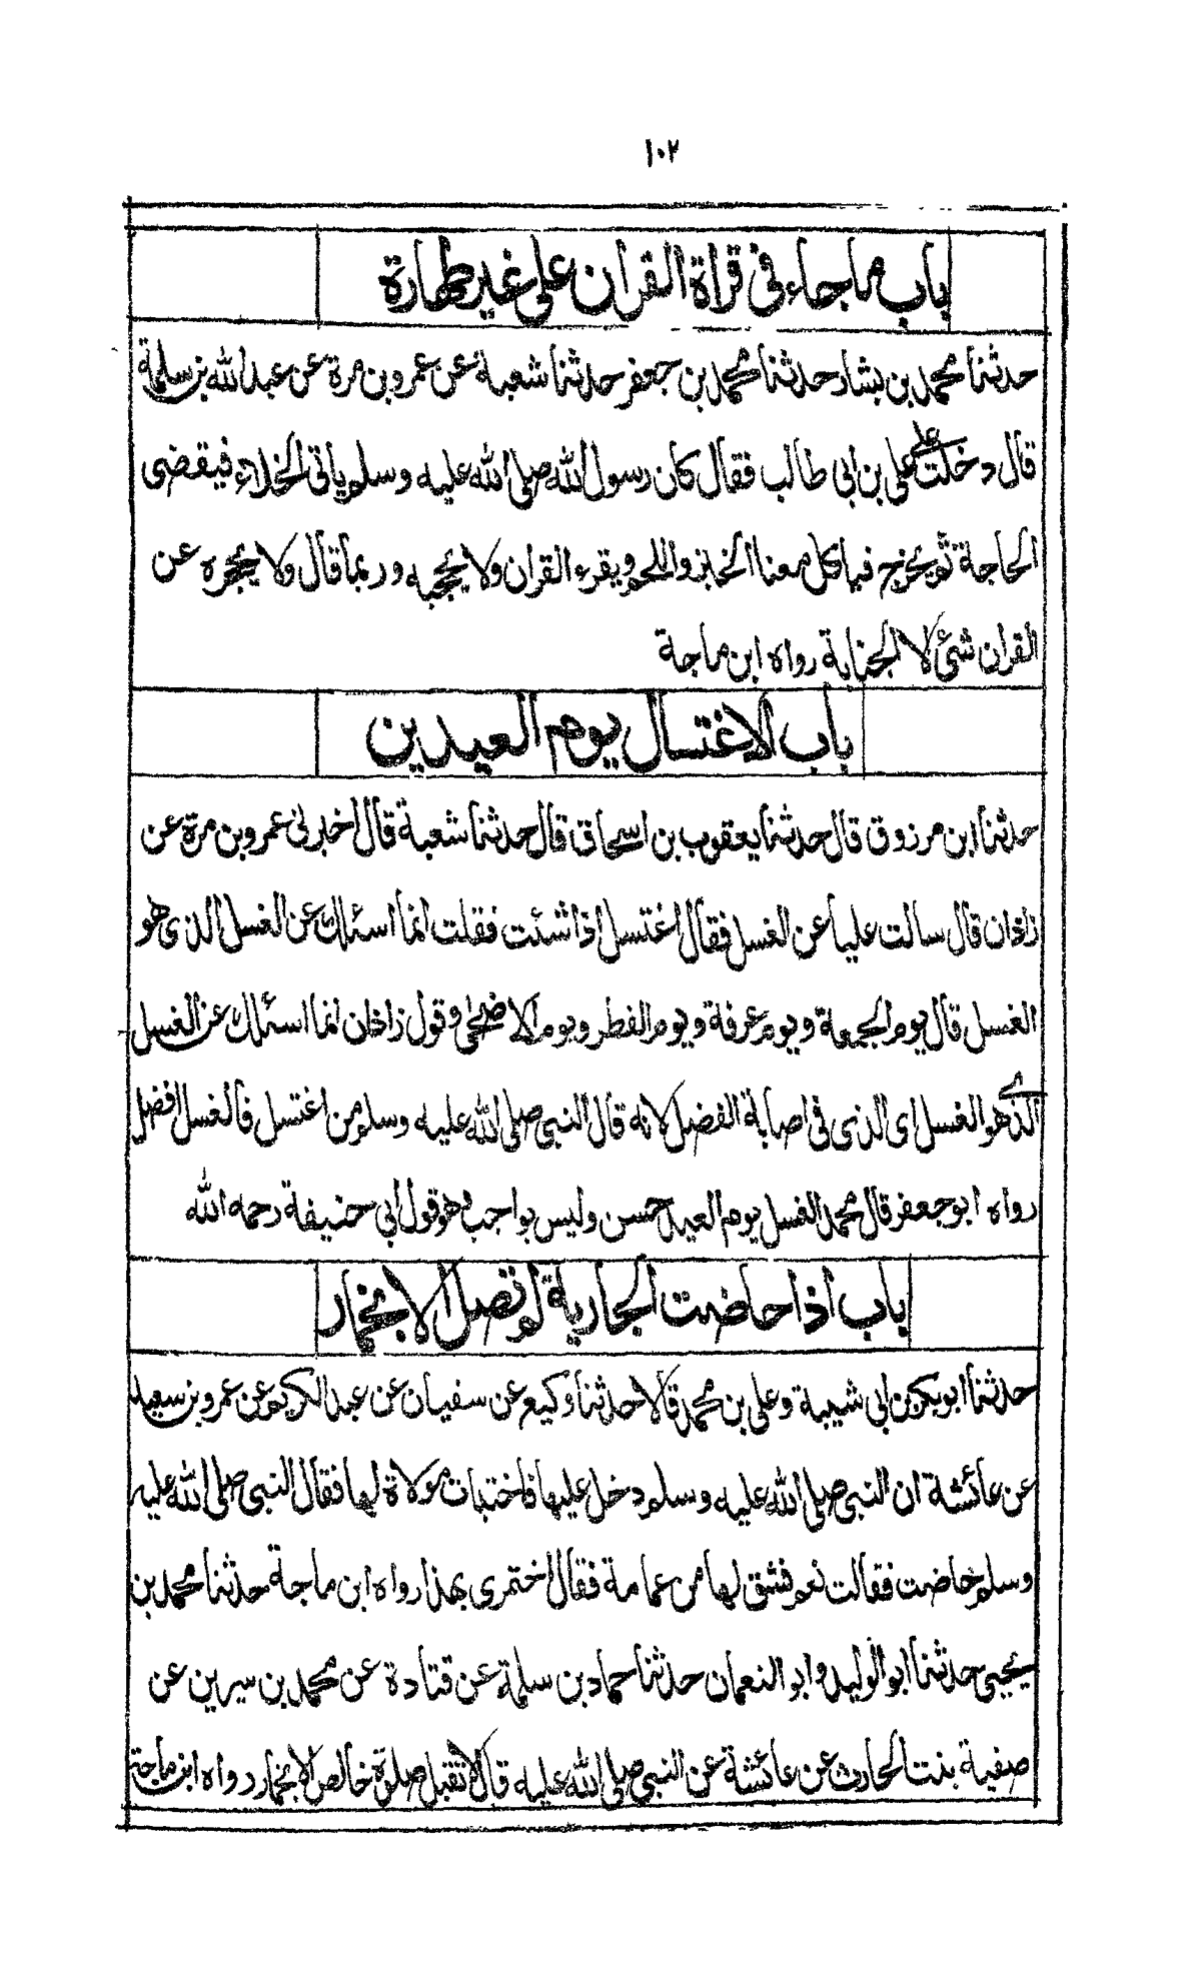 ١٠٢
باب ما جاء في قراة القران على غير طهارة
حدثنا محمد بن بشار حدثنا محمد بن جعفر حدثنا شعبة عن عمرو بن مرة عن عبد الله بن سلمة
قال دخلت على علي بن ابي طالب فقال كان رسول الله صلى الله عليه وسلم ياتي الخلاء فيقضى
الحاجة ثم يخرج فياكل معنا الخبز واللحم ويقرء القران ولا يحجبه وربما قال ولا يحجزه عن
القران شئ لا الجنابة رواه ابن ماجة
باب الاغتسال يوم العيدين
حدثنا ابن مرزوق قال حدثنا يعقوب بن اسحاق قال حدثنا شعبة قال اخبرني عمرو بن مرة عن
زاذان قال سالت عليا عن الغسل فقال اغتسل اذا شئت فقلت انما اسئلك عن الغسل الذى هو
الغسل قال يوم الجمعة ويوم عرفة ويوم الفطر ويوم الاضحى وقول زاذان انما اسئلك عن الغسل
الذي هو الغسل اى الذى في اصابة الفضل لانه قال النبي صلى الله عليه وسلم من اغتسل فالغسل افضل
رواه ابو جعفر قال محمد الغسل يوم العيد حسن وليس بواجب وهو قول ابي حنيفة رحمه الله
باب اذا حاضت الجارية لم تصل الا بخمار
حدثنا ابو بكر بن ابي شيبة وعلي بن محمد قالا حدثنا وكيع عن سفيان عن عبد الكريم عن عمرو بن سعيد
عن عائشة ان النبي صلى الله عليه وسلم دخل عليها فاختبات مولاة لها فقال النبي صلى الله عليه
وسلم حاضت فقالت نعم فشق لها من عمامة فقال اختمرى بهذا رواه ابن ماجة حدثنا محمد بن
يحيى حدثنا ابو الوليد وابو النعمان حدثنا حماد بن سلمة عن قتادة عن محمد بن سيرين عن
صفية بنت الحارث عن عائشة عن النبي صلى الله عليه قال لا تقبل صلوة حائض الا بخمار رواه ابن ماجة